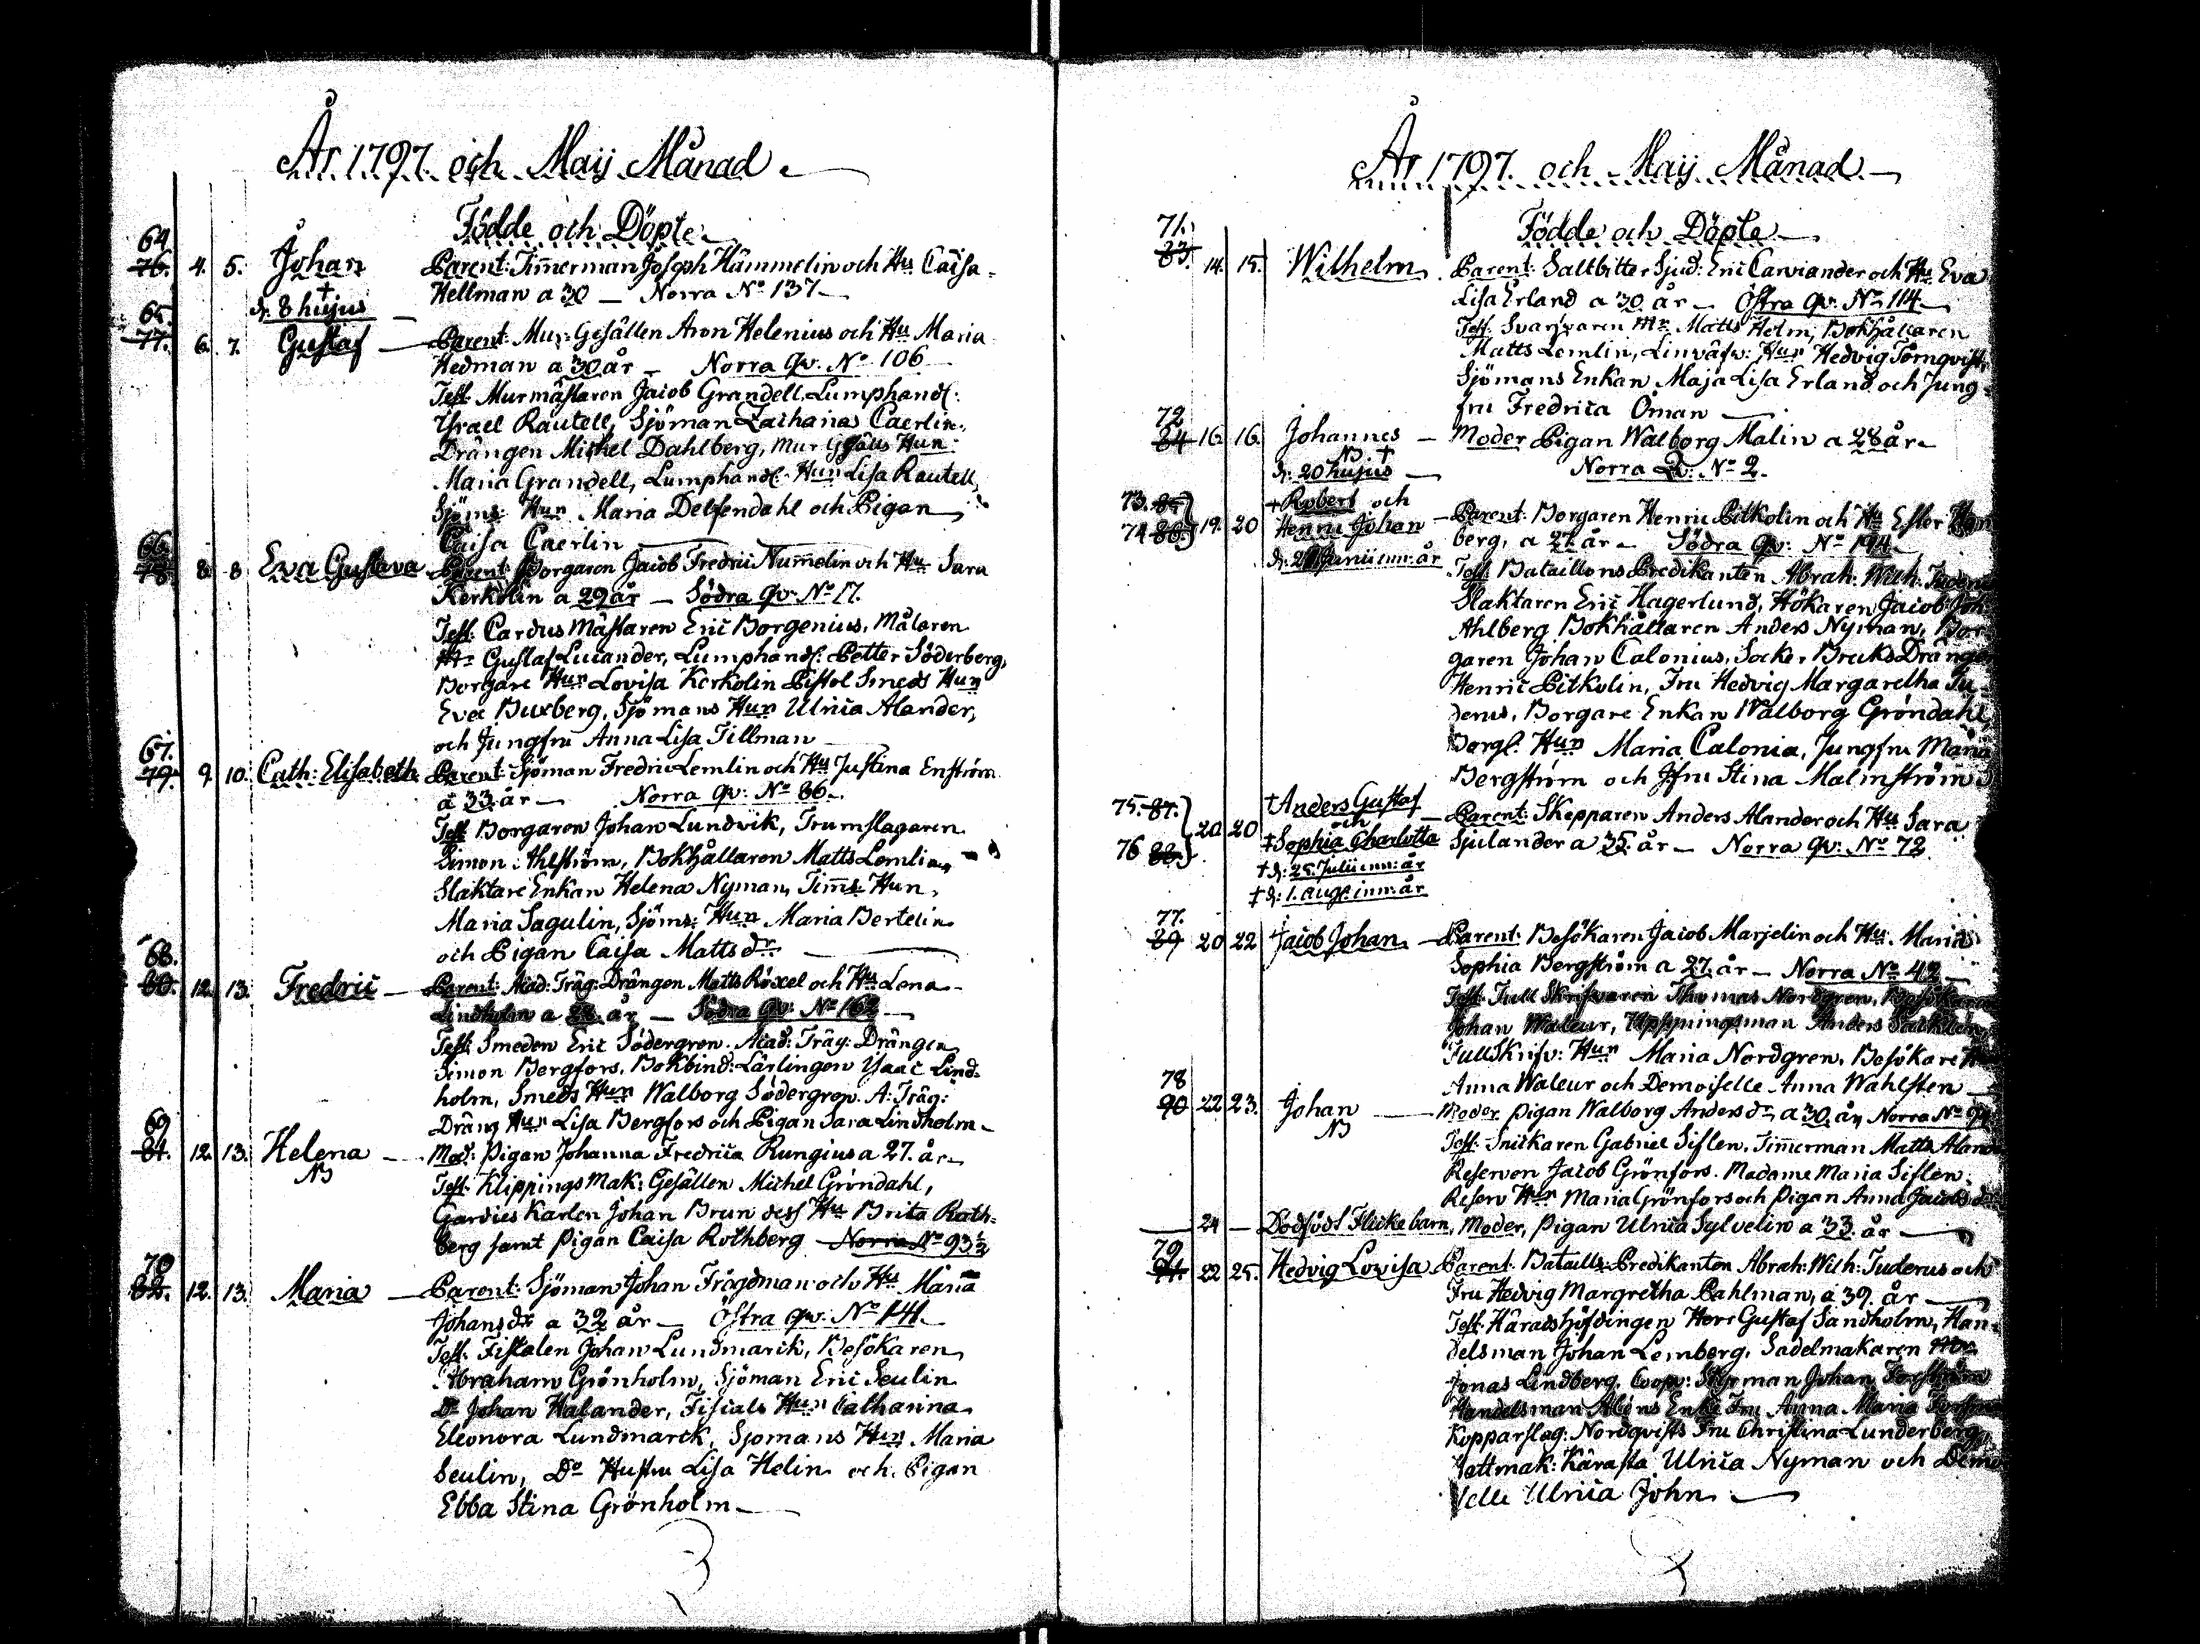 År 1797. och Maij Månad
Födde och Döpte
64.
76. 4. 5. Johan Parent: Timmerman Joseph Hämmelin och Hu Caisa
Hellman a 30 — Norra No 137
† d. 8 hujus
65.
77. 6. 7. Gustaf — Parent: Mur-Gesällen Aron Helenius och Hu Maria
Hedman a 30 år — Norra Qv. No 106
Test: Murmästaren Jacob Grandell, Lumphandl:
Ysrael Rautell, Sjöman Zacharias Caerlin,
Drängen Michel Dahlberg, Mur Gsälls Hun:
Maria Grandell, Lumphandl: Hun Lisa Rautell,
Sjöms: Hun Maria Delfendahl och Pigan
Caisa Caerlin
66.
78. 8. 8 Eva Gustava Parent: Borgaren Jacob Fredric Nummelin och Hu Sara
Kerkolin a 29 år — Södra Qv: No 17.
Test: Cardus Mästaren Eric Borgenius, Målaren
Mr Gustaf Lucander, Lumphandl: Petter Söderberg,
Borgare Hun Lovisa Kerkolin Pistol Smeds Hun
Eva Buxberg, Sjömans Hun Ulrica Alander,
och Jungfru Anna Lisa Tillman
67.
79. 9. 10. Cath: Elisabeth Parent: Sjöman Fredric Lemlin och Hu Justina Enström
a 33 år — Norra Qv: No 86.
Test: Borgaren Johan Lundvik, Trumslagaren
Simon Ahlström, Bokhållaren Matts Lemlin,
Slaktare Enkan Helena Nyman, Timms: Hun,
Maria Sagulin, Sjöms: Hun Maria Bertelin
och Pigan Caisa Matts dr.
68.
80. 12. 13. Fredric — Parent: Acad: Träg: Drängen Matts Röxel och Hu Lena
Lindholm a år — Södra Qv: No 162
Test: Smeden Eric Södergren. Acad: Träg: Drängen
Simon Bergfors. Bokbind: Lärlingen Ysaac Lind-
holm, Smeds Hun Walborg Södergren. A: Träg:
Dräng Hun Lisa Bergfors och Pigan Sara Lindholm
69
81. 12. 13. Helena — Mod: Pigan Johanna Fredrica Rungius a 27. år
NB
Test: Klippings Mak: Gesällen Michel Gröndahl,
Gardies Karlen Johan Brun dess Hu Brita Roth-
berg samt Pigan Caisa Rothberg — Norra No 93 ½
70
82. 12. 13. Maria — Parent: Sjöman Johan Trägdman och Hu Maria
Johans dr a 32 år — Östra Qv. No 141.
Test: Fiskalen Johan Lundmarck, Besökaren
Abraham Grönholm, Sjöman Eric Seulin
Do Johan Halander, Fiscals Hun Catharina
Eleonora Lundmarck, Sjomans Hun Maria
Seulin, Do Hustru Lisa Helin och Pigan
Ebba Stina Grönholm
År 1797. och Maij Månad
Födde och Döpte
71.
83. 14. 15. Wilhelm. Parent: Saltbitter Sjud: Eric Carviander och Hu Eva
Lisa Erland a 30 år — Östra Qv: No 114
Test: Svarfvaren Mr Matts Holm, Bokhållaren
Matts Lemlin, Linväfv: Hun Hedvig Törnqvist,
Sjömans Enkan Maja Lisa Erland och Jung-
fru Fredrica Öman
72
84 16. 16. Johannes — Moder Pigan Walborg Malin a 28 år
NB. †
d. 20 hujus — Norra Q: No 2.
73. 85. † Robert och
74. 86. 19. 20 Henric Johan — Parent: Borgaren Henric Pitkolin och Hu Ester
berg, a 27 år — Södra Qv: No 194
d. Junii inn: år
Test: Bataillons Predikanten Abrah: Wilh: Tuderus
Slaktaren Eric Hagerlund, Hökaren Jacob Joh:
Ahlberg Bokhållaren Anders Nyman, Bor-
garen Johan Calonius, Socker Bruks Dränge
Henric Pitkolin, Fru Hedvig Margaretha Tu-
derus, Borgare Enkan Walborg Gröndahl,
Borgl: Hun Maria Calonia, Jungfru Maria
Bergström och Jfru Stina Malmström
75. 87. † Anders Gustaf
och
20 20 — Parent: Skepparen Anders Alander och Hu Sara
76 88. † Sophia Charlotta Sjulander a 35. år — Norra Qv: No 72
† d: 25. Julii inn: år
† d: 1. Aug: inn: år
77.
89 20 22 † Jacob Johan — Parent: Besökaren Jacob Marjelin och Hu. Maria
Sophia Bergström a 27. år — Norra No 42
Test: Tull Skrifvaren Thomas Nordgren, Besökaren
Johan Waleur, Uppsyningsman Anders
Tull Skrifv: Hun Maria Nordgren, Besökare
Anna Waleur och Demoiselle Anna Wahlsten
78
90 22 23. Johan — Moder Pigan Walborg Anders dr, a 30. år, Norra No
NB
Test: Snickaren Gabriel Siflen, Timmerman Matts
Reserven Jacob Grönfors. Madame Maria Siflen,
Reserv Hun Maria Grönfors och Pigan Anna Jacobs
— 24 — Dödfödt Flickebarn, Moder, Pigan Ulrica Sylvelin a 33. år
79.
91. 22 25. Hedvig Lovisa Parent: Bataills: Predikanten Abrah: Wilh: Tuderus och
Fru Hedvig Margretha Pahlman, a 39. år
Test: Häradshöfdingen Herr Gustaf Sandholm, Han-
delsman Johan Lemberg, Sadelmakaren
Jonas Lindberg, Coop: Styrman Johan
Handelsman Enke Fru Anna Maria
Kopparslag: Nordqvists Fru Christina Lunderberg
Hattmak: Kärasta Ulrica Nyman och Demoi
selle Ulrica John